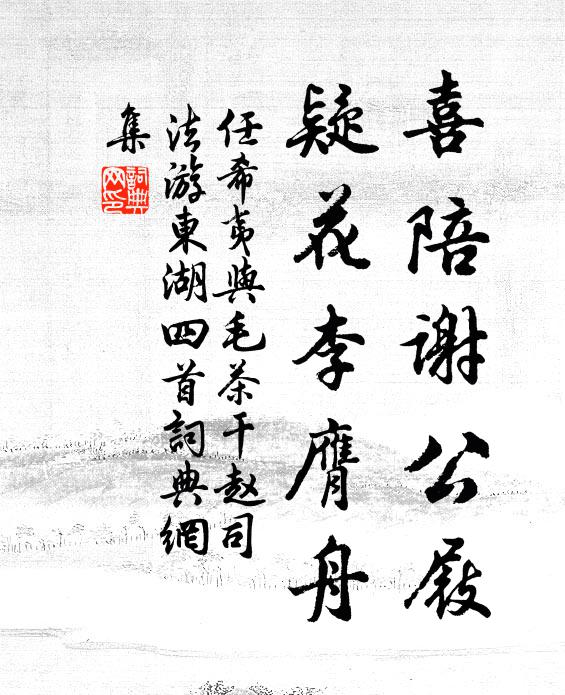 喜陪谢公屐
疑花李膺舟
任希夷與毛茶干赵司
法游東湖四首詞典網
集
詞典网印